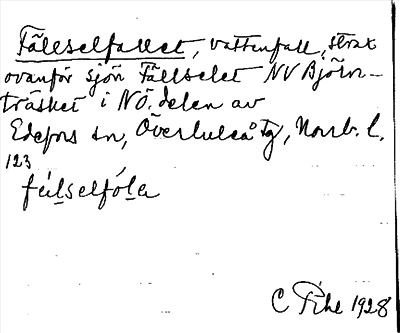 Fällselfallet, vattenfall, strax
ovanför sjön Fällselet NV Björn-
träsket i NÖ. delen av
Edefors sn, Överluleå tg, Norrb. l.
123
fálselfóla
C Pihl 1928